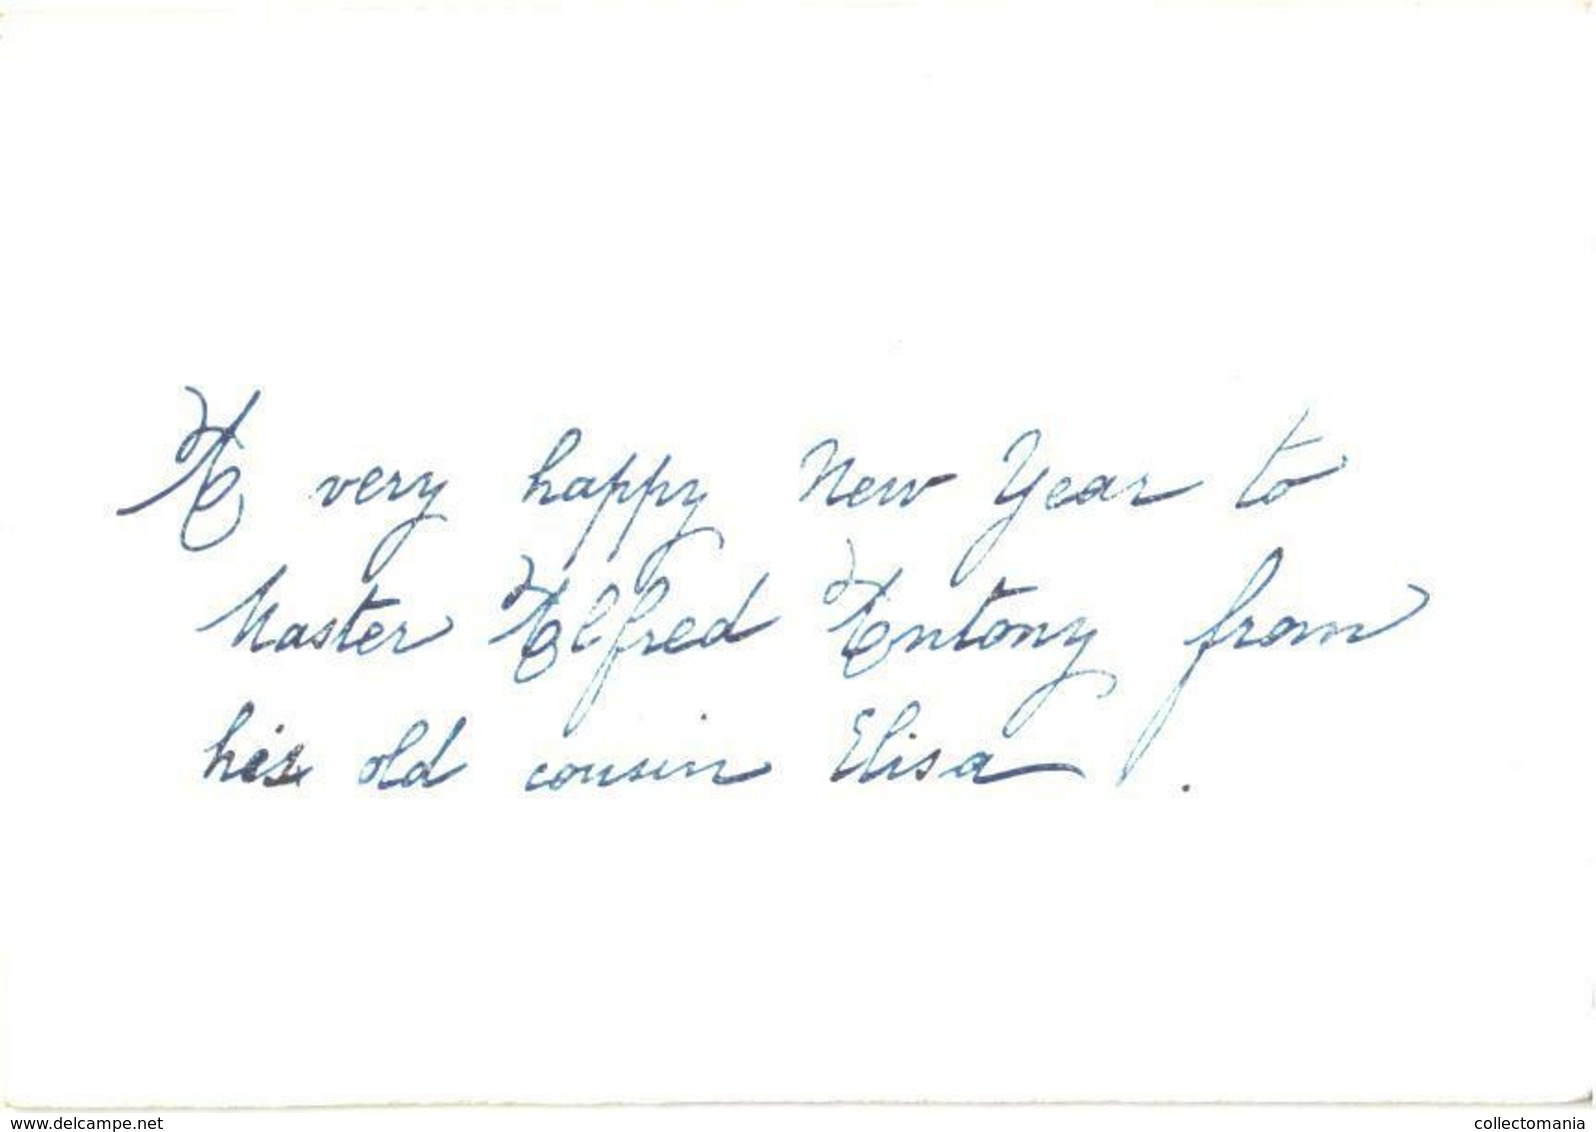 A very happy New Year to
Master Alfred Antony from
his old cousin Elisa.
www.delcampe.net
collectomania